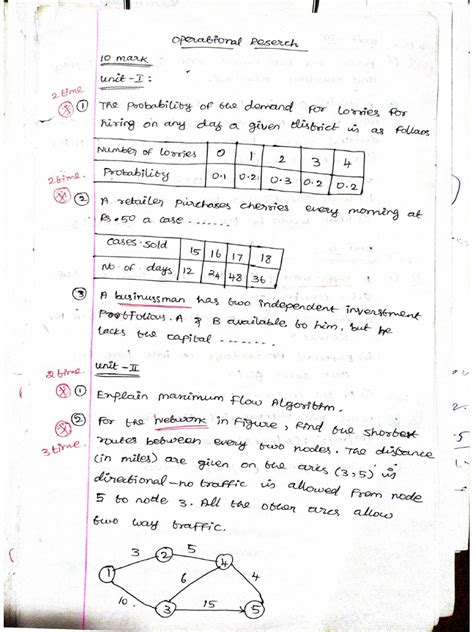 Operational Reserch
10 mark
Unit - I :
2 time
① The Probability of the demand for lorries for
hiring on any day a given district is as follows
Number of lorries 0 1 2 3 4
Probability 0.1 0.2 0.3 0.2 0.2
2 time.
② A retailer purchases cherries every morning at
Rs. 50 a case .......
cases sold 15 16 17 18
No of days 12 24 48 36
③ A businussman has two independent inverstment
Portfolious. A & B available to him, but he
lacks the capital ........
Unit - II
2 time
① Explain maximum Flow Algorithm.
② For the Network in Figure, Find the shortest
3 time.
routes between every two nodes. The distance
(in miles) are given on the arcs (3,5) is
directional - no traffic is allowed from node
5 to node 3. All the other arcs allow
two way traffic.
3 2 5 4
1 6 4
10. 3 15 5